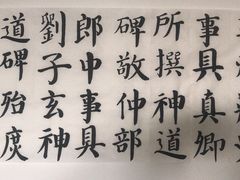 事具真卿
所撰神道
碑敬仲部
郎中事具
劉子玄神
道碑殆庶